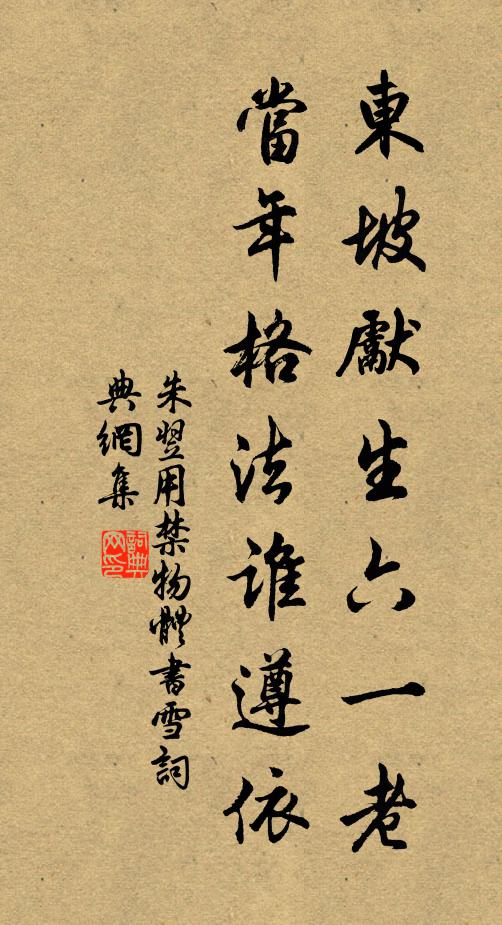 東坡獻生六一老
當年格法誰遵依
朱翌用禁物體書雪詞
典網集
詞典網印